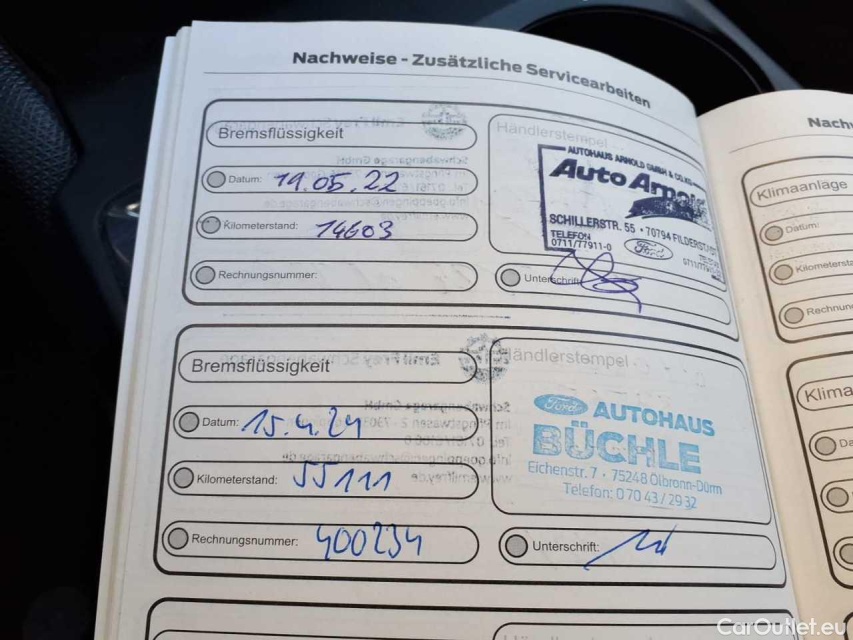 Nachweise - Zusätzliche Servicearbeiten
Bremsflüssigkeit
Datum: 19.05.22
Kilometerstand: 14603
Rechnungsnummer:
Händlerstempel
AUTOHAUS ARNOLD GMBH & CO. KG
Auto Arno
SCHILLERSTR. 55 · 70794 FILDERSTADT
TELEFON
0711/77911-0
Ford
Unterschrift
Bremsflüssigkeit
Datum: 15.4.24
Kilometerstand: 55111
Rechnungsnummer: 400234
Händlerstempel
Ford AUTOHAUS
BÜCHLE
Eichenstr. 7 · 75248 Ölbronn-Dürrn
Telefon: 0 70 43 / 29 32
Unterschrift:
Nachw
Klimaanlage
Datum:
Kilometersta
Rechnun
Klima
Da
CarOutlet.eu